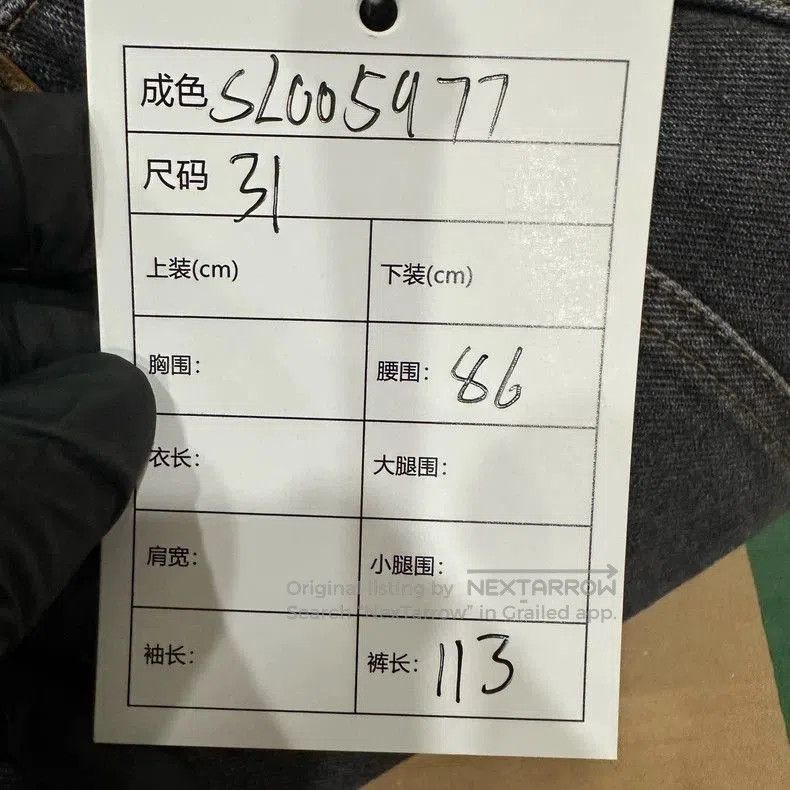 成色 SL005977
尺码 31
上装(cm) 下装(cm)
胸围： 腰围： 86
衣长： 大腿围：
肩宽： 小腿围：
Original listing by NEXTARROW
Search "NexTarrow" in Grailed app.
袖长： 裤长： 113